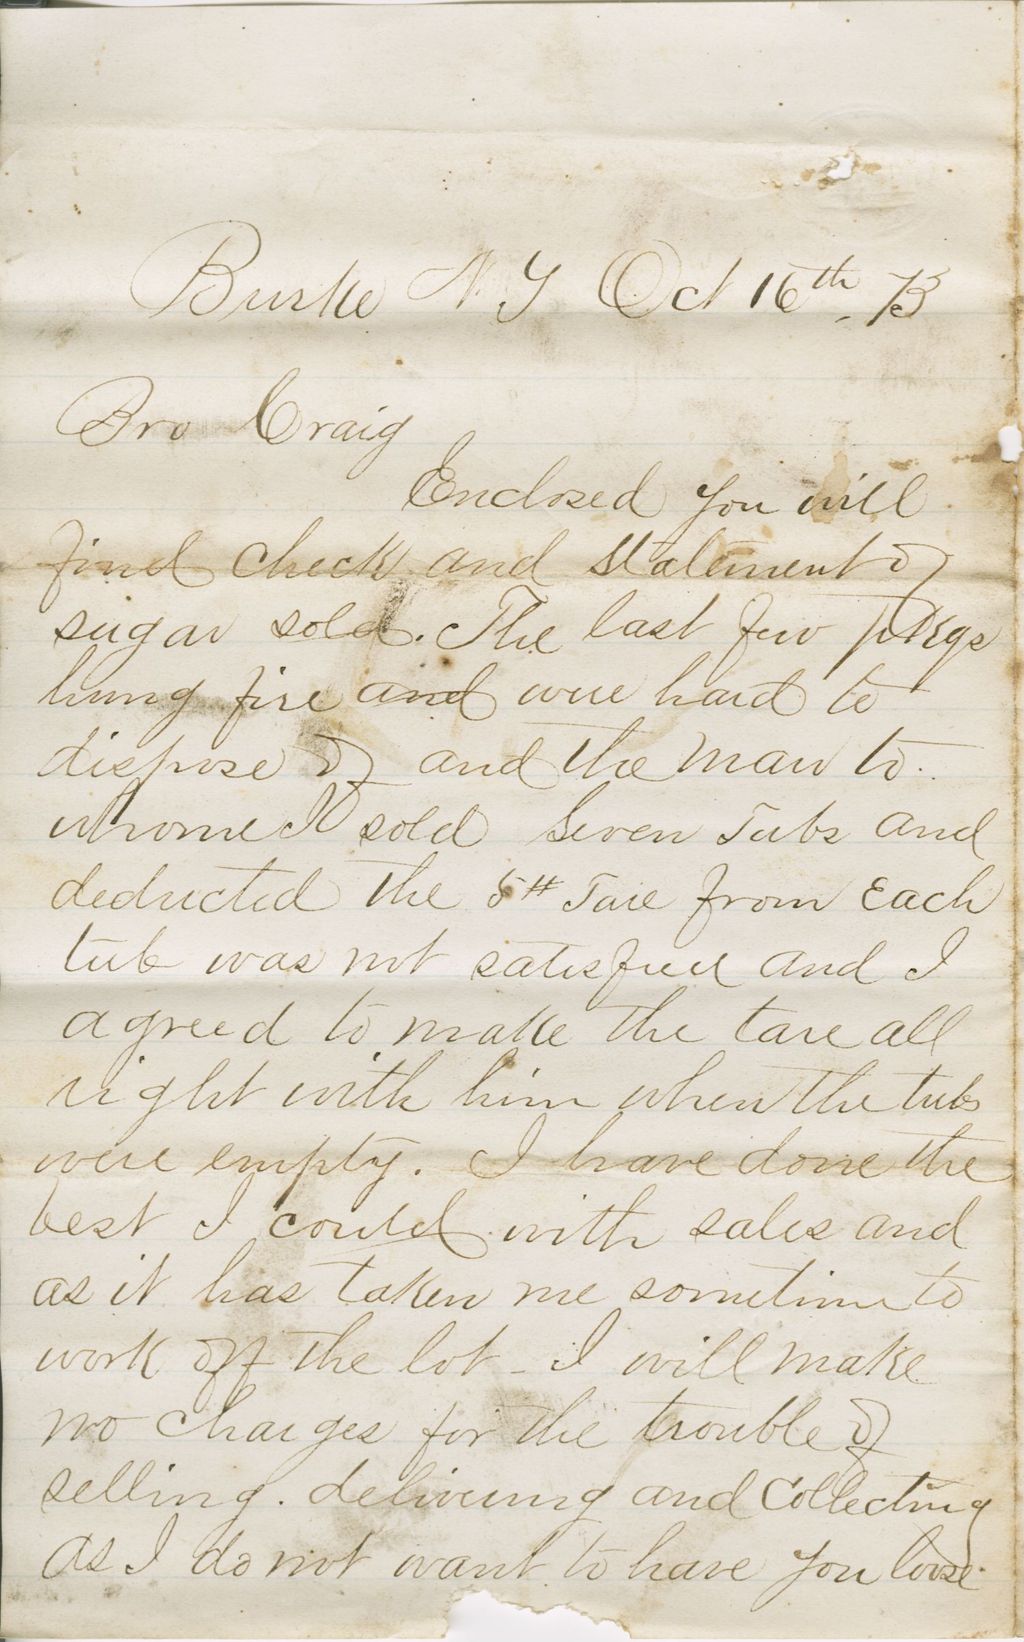 Burke N. Y Oct 16th, 73
Bro Craig
Enclosed you will
find check and statement of
sugar sold. The last few pkgs
hung fire and were hard to
dispose of and the man to
whome I sold Seven Tubs and
deducted the 5# Tare from Each
tub was not satisfied and I
agreed to make the tare all
right with him when the tubs
were empty. I have done the
best I could with sales and
as it has taken me sometime to
work off the lot - I will make
no charges for the trouble of
selling. delivering and Collecting
as I do not want to have you loose